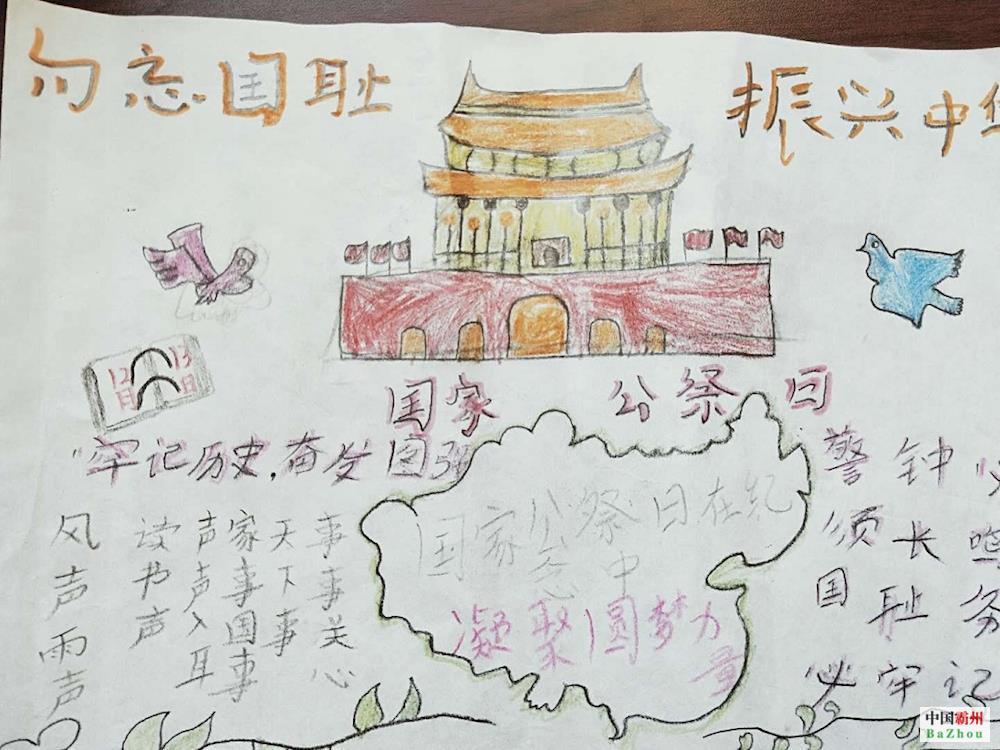 勿忘国耻
振兴中华
12月
13日
国家公祭日
"牢记历史,奋发图强
风声雨声
读书声
声声入耳
家事国事
天下事
事事关心
国家公祭日在纪
念中
凝聚圆梦力
量
警钟
须长鸣
国耻务
必牢记
中国霸州
BaZhou